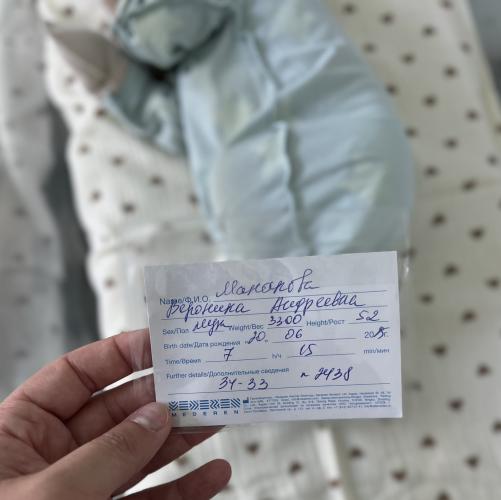 Name/Ф.И.О. Мананова
Вероника Андреевна
Sex/Пол муж Weight/Вес 3300 Height/Рост 52
Birth date/Дата рождения 20 06 20 г.
Time/Время 7 h/ч 15 min/мин
Further details/Дополнительные сведения
34-33 2438
MEDEREN